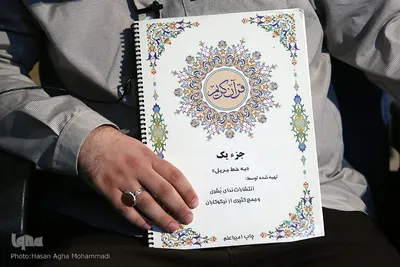 قرآن کریم
جزء یک
«به خط بریل»
تهیه شده توسط:
انتشارات ندای بُشری
و جمع کثیری از نیکوکاران
چاپ امیراعلم
iqna
Photo:Hasan Agha Mohammadi